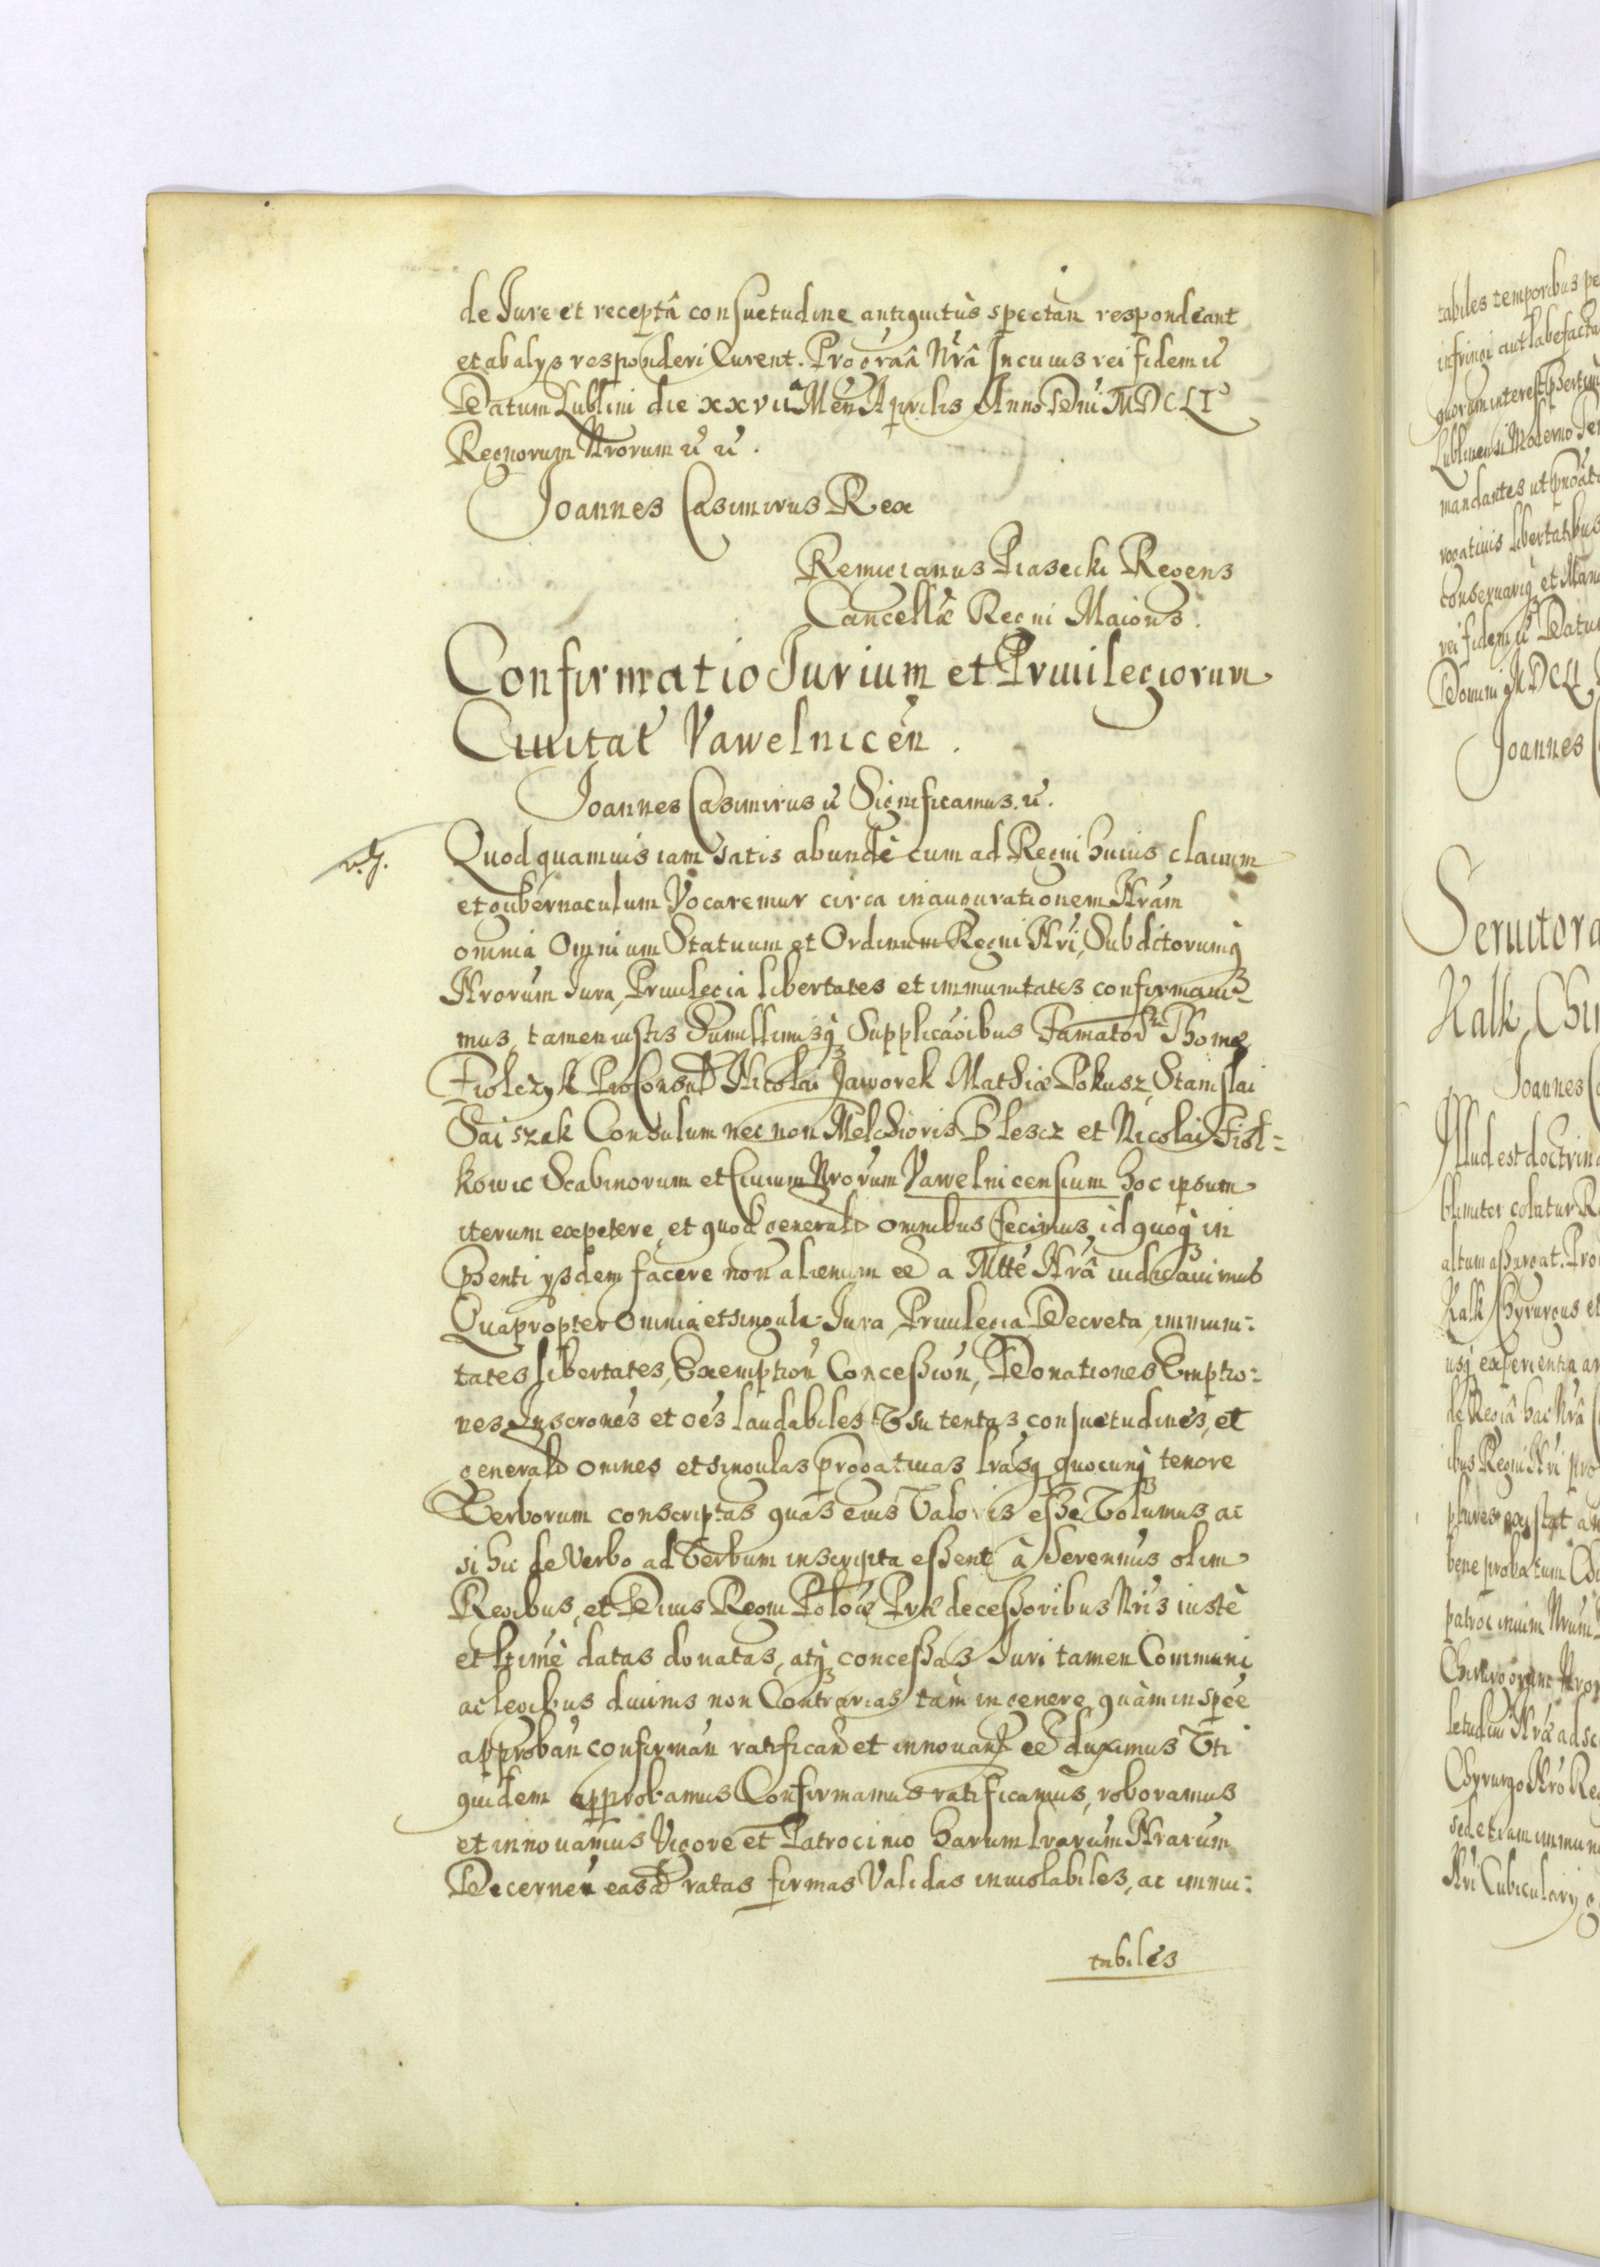 de Jure et receptâ consuetudine antiquitùs spectan respondeant
et ab alys responderi Curent. Pro graâ Nrâ In cuius rei fidem &
Datum Lublini die xxvii Men Aprilis Anno Dni MDCLI
Regnorum Nrorum & &.
Joannes Casimirus Rex
Remigianus Piasecki Regens
Cancellæ Regni Maioris.
Confirmatio Jurium et Priuilegiorum
Ciuitat Vawelnicen.
Joannes Casimirus & Significamus. &.
Quod quamuis iam satis abundè cum ad Regni huius clauum
et gubernaculum Vocaremur circa inaugurationem Nram
omnia Omnium Statuum et Ordinum Regni Nri, Subditorumq
Nrorum Jura, Priuilegia libertates et immunitates confirmaui-
mus, tamen iustis humillimisq Supplicaoibus Famator Thomæ
Fiolczyk Proconsul Nicolai Jaworek Mathiæ Pokusz, Stanislai
Saiszek Consulum nec non Melchioris Blescz et Nicolai Fiol=
kowic Scabinorum et Ciuium Nrorum Vawelnicensium hoc ipsum
iterum expetere, et quod general omnibus fecimus, id quoq in
pnti ysdem facere non alienum ee a Mtte Nrâ iudicauimus
Quapropter Omnia et singula Jura, Priuilegia, Decreta, immuni:
tates libertates, Exemption Concession, Donationes Emptio:
nes Inscrones et oes laudabiles Vsu tentas consuetudines, et
general omnes et singulas progatiuas lrasq quocunq tenore
Verborum conscriptas quas eius Valoris esse Volumus, ac
si hic de Verbo ad Verbum inscripta essent à Serennus olim
Regibus, et Diuis Regni Poloæ Prædecessoribus Nris iustè
et ltimè datas donatas, atq concessas Juri tamen Communi
ac legibus diuinis non Contrarias tàm in genere quàm in spee
approban confirman ratifican et innouan ee duximus Vti
quidem approbamus Confirmamus ratificamus, roboramus
et innouamus Vigore et Patrocinio harum lrarum Nrarum
Decernen easd ratas firmas Validas inuiolabiles, ac immu:
tabiles
tabiles temporibus
infringi aut labefacta
quorum interest
Lublinensi Moderno
mandantes ut
rogatiuis libertatibus
conseruariq et
rei fidem & Datu
Domini MDCLI
Joannes
Seruitora
Kalk Chi
Joannes
Illud est doctrina
blimiter colatur
altum assurgat. Pro
Kalk Chyrurgus et
usq experientia
de Regiâ hac Nrâ
ibus Regni Nri pro
bene probatum
patrocinium Nrum
Chyrurgo Nro Reg
sed etiam immuni
Nri Cubiculary